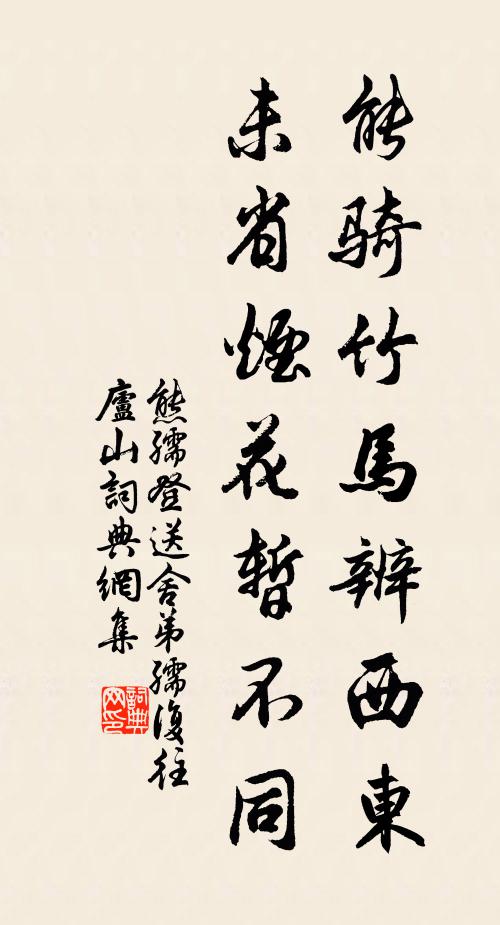 能骑竹馬辨西東
未省煙花暫不同
熊孺登送舍弟孺復往
廬山詞典網集
詞典網印